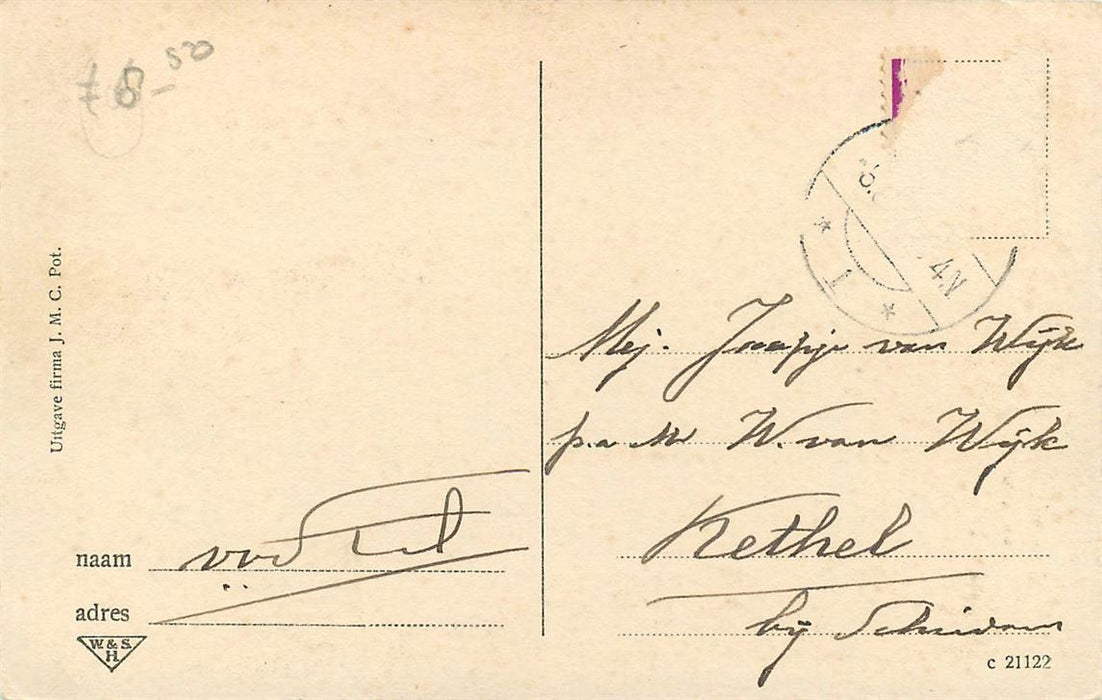 6-50
Uitgave firma J. M. C. Pot.
4N
Mej. Jaapje van Wijk
p.a Mr W. van Wijk
Kethel
bij Schiedam
naam
adres
W. & S.
H.
c 21122